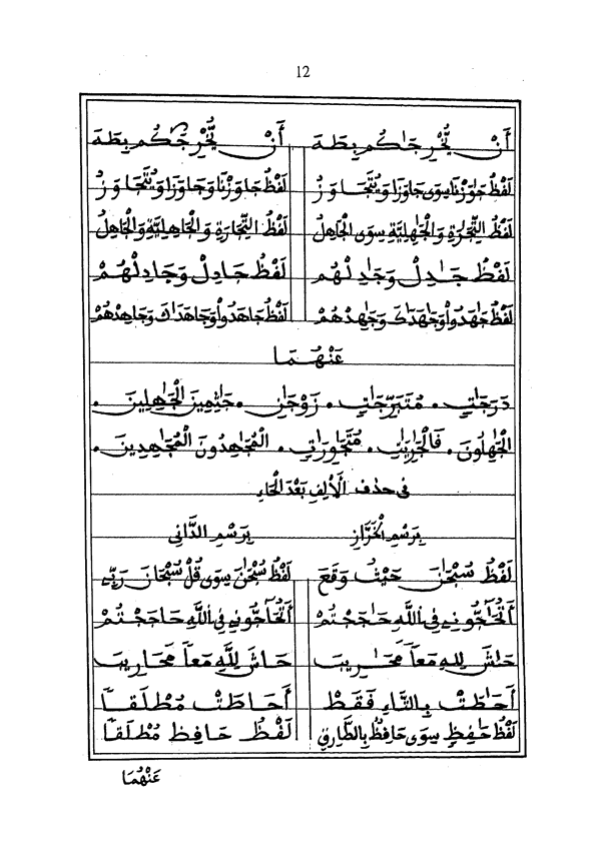 12
أَنْ يُخْرِجَٰكُم بِطَهَ أَنْ يُخْرِجَاكُم بِطَهَ
لَفْظُ جَٰوَزْنَا سِوَى جَاوَزَا وَيُتَجَاوَزُ لَفْظُ جَاوَزْنَا وَجَاوَزَا وَيُتَجَاوَزُ
لَفْظُ التِّجَٰرَةِ وَالْجَٰهِلِيَّةِ سِوَى الْجَاهِلُ لَفْظُ التِّجَارَةِ وَالْجَاهِلِيَّةِ وَالْجَاهِلُ
لَفْظُ جَٰدِلْ وَجَٰدِلْهُم لَفْظُ جَادِلْ وَجَادِلْهُمْ
لَفْظُ جَٰهَدُواْ وَجَٰهَدَكَ وَجَٰهِدْهُمْ لَفْظُ جَاهَدُواْ وَجَاهَدَاكَ وَجَاهِدْهُمْ
عَنْهُمَا
دَرَجَٰتٍ. مُتَبَرِّجَٰتٍ. زَوْجَٰنِ. جَٰثِمِينَ الْجَٰهِلِينَ.
الْجَٰهِلُونَ. فَالْجَٰرِيَٰتِ. مُتَجَٰوِرَٰتٍ. الْمُجَٰهِدُونَ الْمُجَٰهِدِينَ.
فِي حذف الْأَلِفِ بَعْدَ الْحَاءِ
بِرَسْمِ الْخَرَّازِ بِرَسْمِ الدَّانِي
لَفْظُ سُبْحَٰنَ حَيْثُ وَقَعَ لَفْظُ سُبْحَٰنَ سِوَى قُلْ سُبْحَانَ رَبِّي
أَتُحَٰجُّونِي فِي اللَّهِ حَٰجَجْتُمْ أَتُحَاجُّونِي فِي اللَّهِ حَاجَجْتُمْ
حَٰشَ لِلهِ مَعاً مَحَٰرِيبَ حَاشَ لِلَّهِ مَعاً مَحَارِيبَ
أَحَٰطَتْ بِالتَّاءِ فَقَطْ أَحَاطَتْ مُطْلَقاً
لَفْظُ حَٰفِظٍ سِوَى حَافِظٌ بِالطَّارِقِ لَفْظُ حَافِظ مُطْلَقاً
عَنْهُمَا